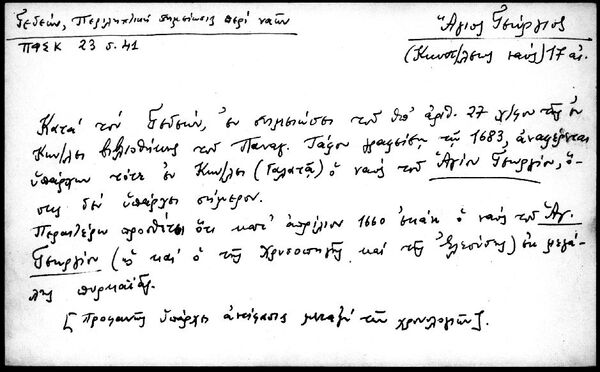 Γεδεών, Περιληπτικαὶ σημειώσεις περὶ ναῶν
ΠΦΣΚ 23 σ. 41
Ἅγιος Γεώργιος
(Κωνσ/λεως ναός) 17 αἰ.
Κατὰ τὸν Γεδεών, ἐν σημειώσει τοῦ ὑπ' ἀριθ. 27 χ/φου τῆς ἐν
Κων/λει βιβλιοθήκης τοῦ Παναγ. Τάφου γραφείσῃ τῷ 1683, ἀναφέρεται
ὑπάρχων τότε ἐν Κων/λει (Γαλατᾷ) ὁ ναὸς τοῦ Ἁγίου Γεωργίου, ὅ-
στις δὲν ὑπάρχει σήμερον.
Περαιτέρω προσθέτει ὅτι κατ' ἀπρίλιον 1660 ἐκάη ὁ ναὸς τοῦ Ἁγ.
Γεωργίου (ὡς καὶ ὁ τῆς Χρυσοπηγῆς καὶ τῆς Ἐλεούσης) ἐκ μεγά-
λης πυρκαϊᾶς.
[Προφανῶς ὑπάρχει ἀντίφασις μεταξὺ τῶν χρονολογιῶν].